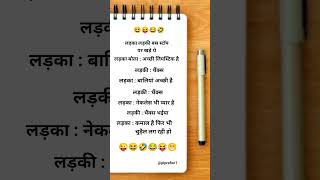 लड़का लड़की बस स्टॉप
पर खडे थे
लड़का बोला : अच्छी लिपस्टिक है
लड़की : थैंक्स
लड़का : बालियां अच्छी है
लड़की : थैंक्स
लड़का : नेकलेस भी प्यार है
लड़की : थैंक्स भईया
लड़का : कमाल है फिर भी
चुड़ैल लग रही हो